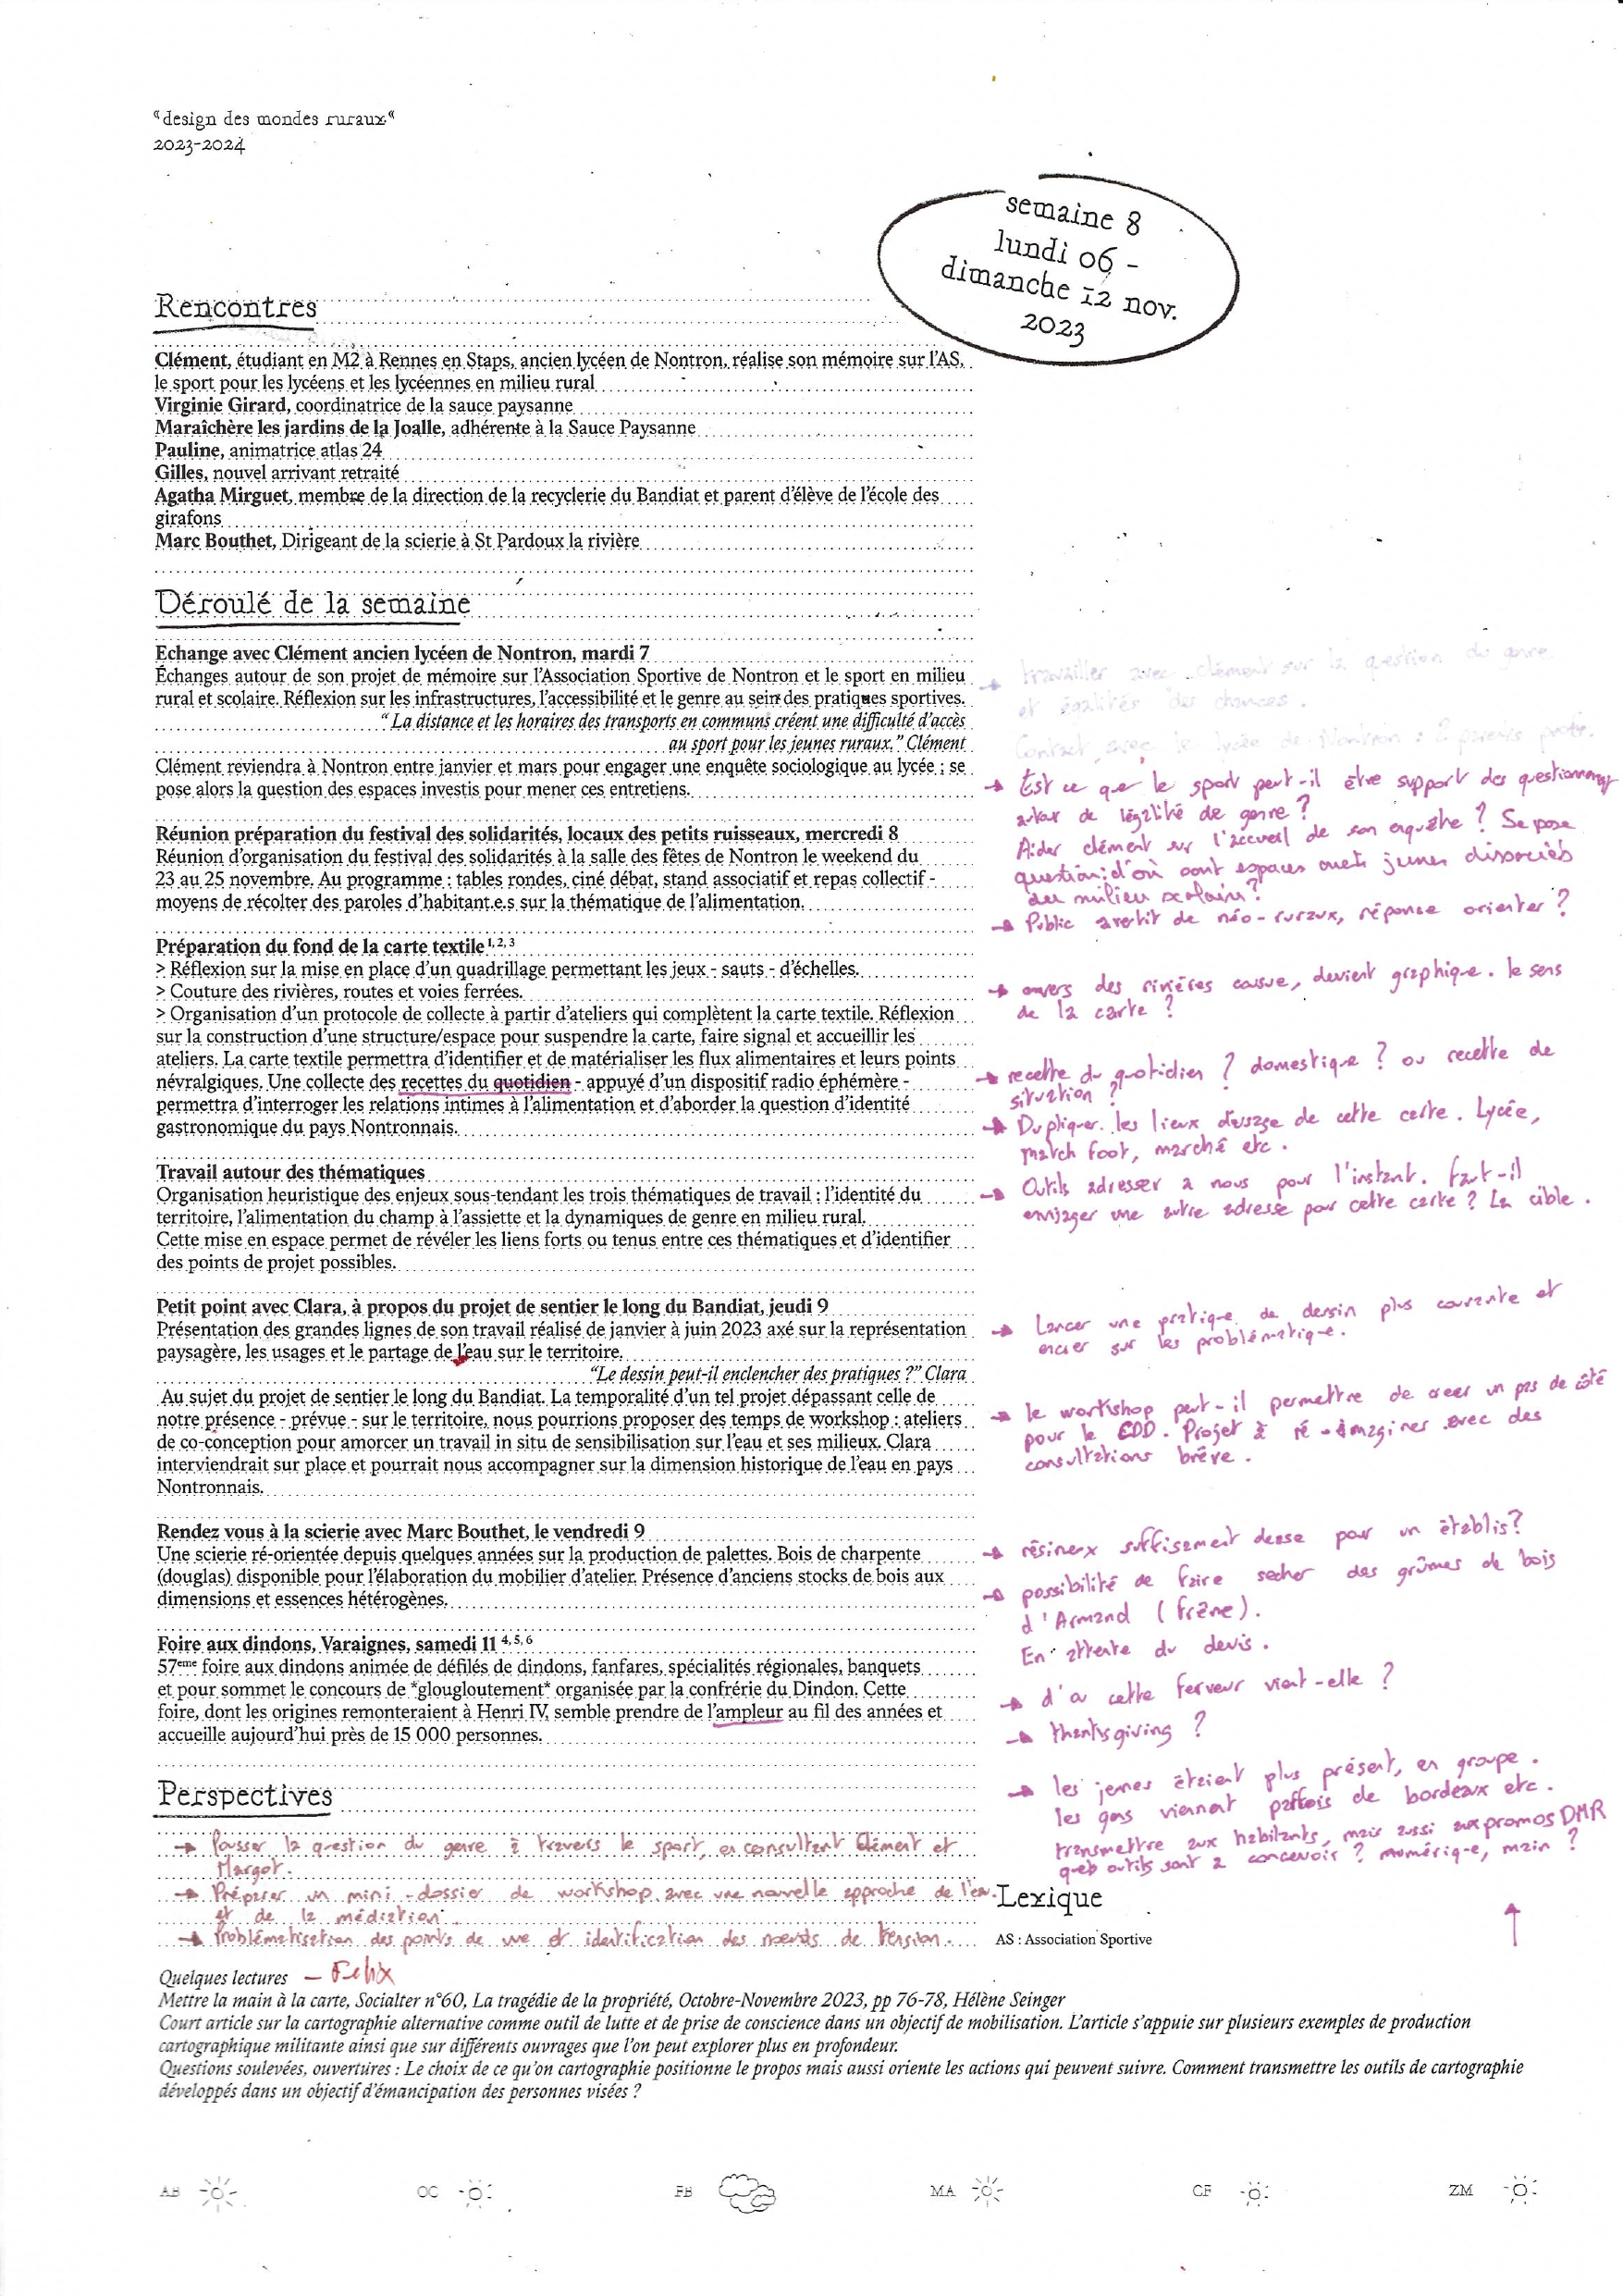 “design des mondes ruraux“
2023-2024
semaine 8
lundi 06 -
dimanche 12 nov.
2023
Rencontres
Clément, étudiant en M2 à Rennes en Staps, ancien lycéen de Nontron, réalise son mémoire sur l’AS,
le sport pour les lycéens et les lycéennes en milieu rural
Virginie Girard, coordinatrice de la sauce paysanne
Maraîchère les jardins de la Joalle, adhérente à la Sauce Paysanne
Pauline, animatrice atlas 24
Gilles, nouvel arrivant retraité
Agatha Mirguet, membre de la direction de la recyclerie du Bandiat et parent d’élève de l’école des
girafons
Marc Bouthet, Dirigeant de la scierie à St Pardoux la rivière
Déroulé de la semaine
Echange avec Clément ancien lycéen de Nontron, mardi 7
Échanges autour de son projet de mémoire sur l’Association Sportive de Nontron et le sport en milieu
rural et scolaire. Réflexion sur les infrastructures, l’accessibilité et le genre au sein des pratiques sportives.
“ La distance et les horaires des transports en communs créent une difficulté d’accès
au sport pour les jeunes ruraux.” Clément
Clément reviendra à Nontron entre janvier et mars pour engager une enquête sociologique au lycée ; se
pose alors la question des espaces investis pour mener ces entretiens.
→ travailler avec clément sur la question du genre
et égalités des chances.
Contact avec le lycée de Nontron : 2 parents profs.
→ Est ce que le sport peut-il être support des questionnement
autour de légalité de genre ?
Aider clément sur l'accueil de son enquête ? Se pose
question : d'où sont espaces jeunes dissociés
du milieu scolaire ?
Réunion préparation du festival des solidarités, locaux des petits ruisseaux, mercredi 8
Réunion d’organisation du festival des solidarités à la salle des fêtes de Nontron le weekend du
23 au 25 novembre. Au programme : tables rondes, ciné débat, stand associatif et repas collectif -
moyens de récolter des paroles d’habitant.e.s sur la thématique de l’alimentation.
→ Public avertit de néo-ruraux, réponse orienter ?
Préparation du fond de la carte textile 1, 2, 3
> Réflexion sur la mise en place d’un quadrillage permettant les jeux - sauts - d’échelles.
> Couture des rivières, routes et voies ferrées.
> Organisation d’un protocole de collecte à partir d’ateliers qui complètent la carte textile. Réflexion
sur la construction d’une structure/espace pour suspendre la carte, faire signal et accueillir les
ateliers. La carte textile permettra d’identifier et de matérialiser les flux alimentaires et leurs points
névralgiques. Une collecte des recettes du quotidien - appuyé d’un dispositif radio éphémère -
permettra d’interroger les relations intimes à l’alimentation et d’aborder la question d’identité
gastronomique du pays Nontronnais.
→ envers des rivières cousue, devient graphique. le sens
de la carte ?
→ recette du quotidien ? domestique ? ou recette de
situation ?
→ Dupliquer les lieux d'usage de cette carte. Lycée,
match foot, marché etc.
Travail autour des thématiques
Organisation heuristique des enjeux sous-tendant les trois thématiques de travail : l’identité du
territoire, l’alimentation du champ à l’assiette et la dynamiques de genre en milieu rural.
Cette mise en espace permet de révéler les liens forts ou tenus entre ces thématiques et d’identifier
des points de projet possibles.
→ Outils adresser a nous pour l'instant. faut-il
envisager une autre adresse pour cette carte ? La cible.
Petit point avec Clara, à propos du projet de sentier le long du Bandiat, jeudi 9
Présentation des grandes lignes de son travail réalisé de janvier à juin 2023 axé sur la représentation
paysagère, les usages et le partage de l’eau sur le territoire.
“Le dessin peut-il enclencher des pratiques ?” Clara
Au sujet du projet de sentier le long du Bandiat. La temporalité d’un tel projet dépassant celle de
notre présence - prévue - sur le territoire, nous pourrions proposer des temps de workshop : ateliers
de co-conception pour amorcer un travail in situ de sensibilisation sur l’eau et ses milieux. Clara
interviendrait sur place et pourrait nous accompagner sur la dimension historique de l’eau en pays
Nontronnais.
→ Lancer une pratique de dessin plus courante et
encier sur les problématique.
→ le workshop peut-il permettre de creer un pas de côté
pour le CDD. Projet à ré-imaginer avec des
consultations brève.
Rendez vous à la scierie avec Marc Bouthet, le vendredi 9
Une scierie ré-orientée depuis quelques années sur la production de palettes. Bois de charpente
(douglas) disponible pour l’élaboration du mobilier d’atelier. Présence d’anciens stocks de bois aux
dimensions et essences hétérogènes.
→ résineux suffisament dense pour un établis?
→ possibilité de faire secher des grûmes de bois
d'Armand (frêne).
En attente du devis.
Foire aux dindons, Varaignes, samedi 11 4, 5, 6
57eme foire aux dindons animée de défilés de dindons, fanfares, spécialités régionales, banquets
et pour sommet le concours de *glougloutement* organisée par la confrérie du Dindon. Cette
foire, dont les origines remonteraient à Henri IV, semble prendre de l’ampleur au fil des années et
accueille aujourd’hui près de 15 000 personnes.
→ d'ou cette ferveur vient-elle ?
→ thanksgiving ?
→ les jeunes étaient plus présent, en groupe.
les gens viennent parfois de bordeaux etc.
transmettre aux habitants, mais aussi aux promos DMR
quels outils sont a concevoir ? numérique, main ?
Perspectives
→ Pousser la question du genre à travers le sport, en consultant Clément et
Margot.
→ Préparer un mini-dossier de workshop avec une nouvelle approche de l'eau
et de la médiation.
→ Problématisation des points de vue et identification des nœuds de tension.
Lexique
AS : Association Sportive
Quelques lectures – Felix
Mettre la main à la carte, Socialter n°60, La tragédie de la propriété, Octobre-Novembre 2023, pp 76-78, Hélène Seinger
Court article sur la cartographie alternative comme outil de lutte et de prise de conscience dans un objectif de mobilisation. L’article s’appuie sur plusieurs exemples de production
cartographique militante ainsi que sur différents ouvrages que l’on peut explorer plus en profondeur.
Questions soulevées, ouvertures : Le choix de ce qu’on cartographie positionne le propos mais aussi oriente les actions qui peuvent suivre. Comment transmettre les outils de cartographie
développés dans un objectif d’émancipation des personnes visées ?
AB
OC
FB
MA
CF
ZM